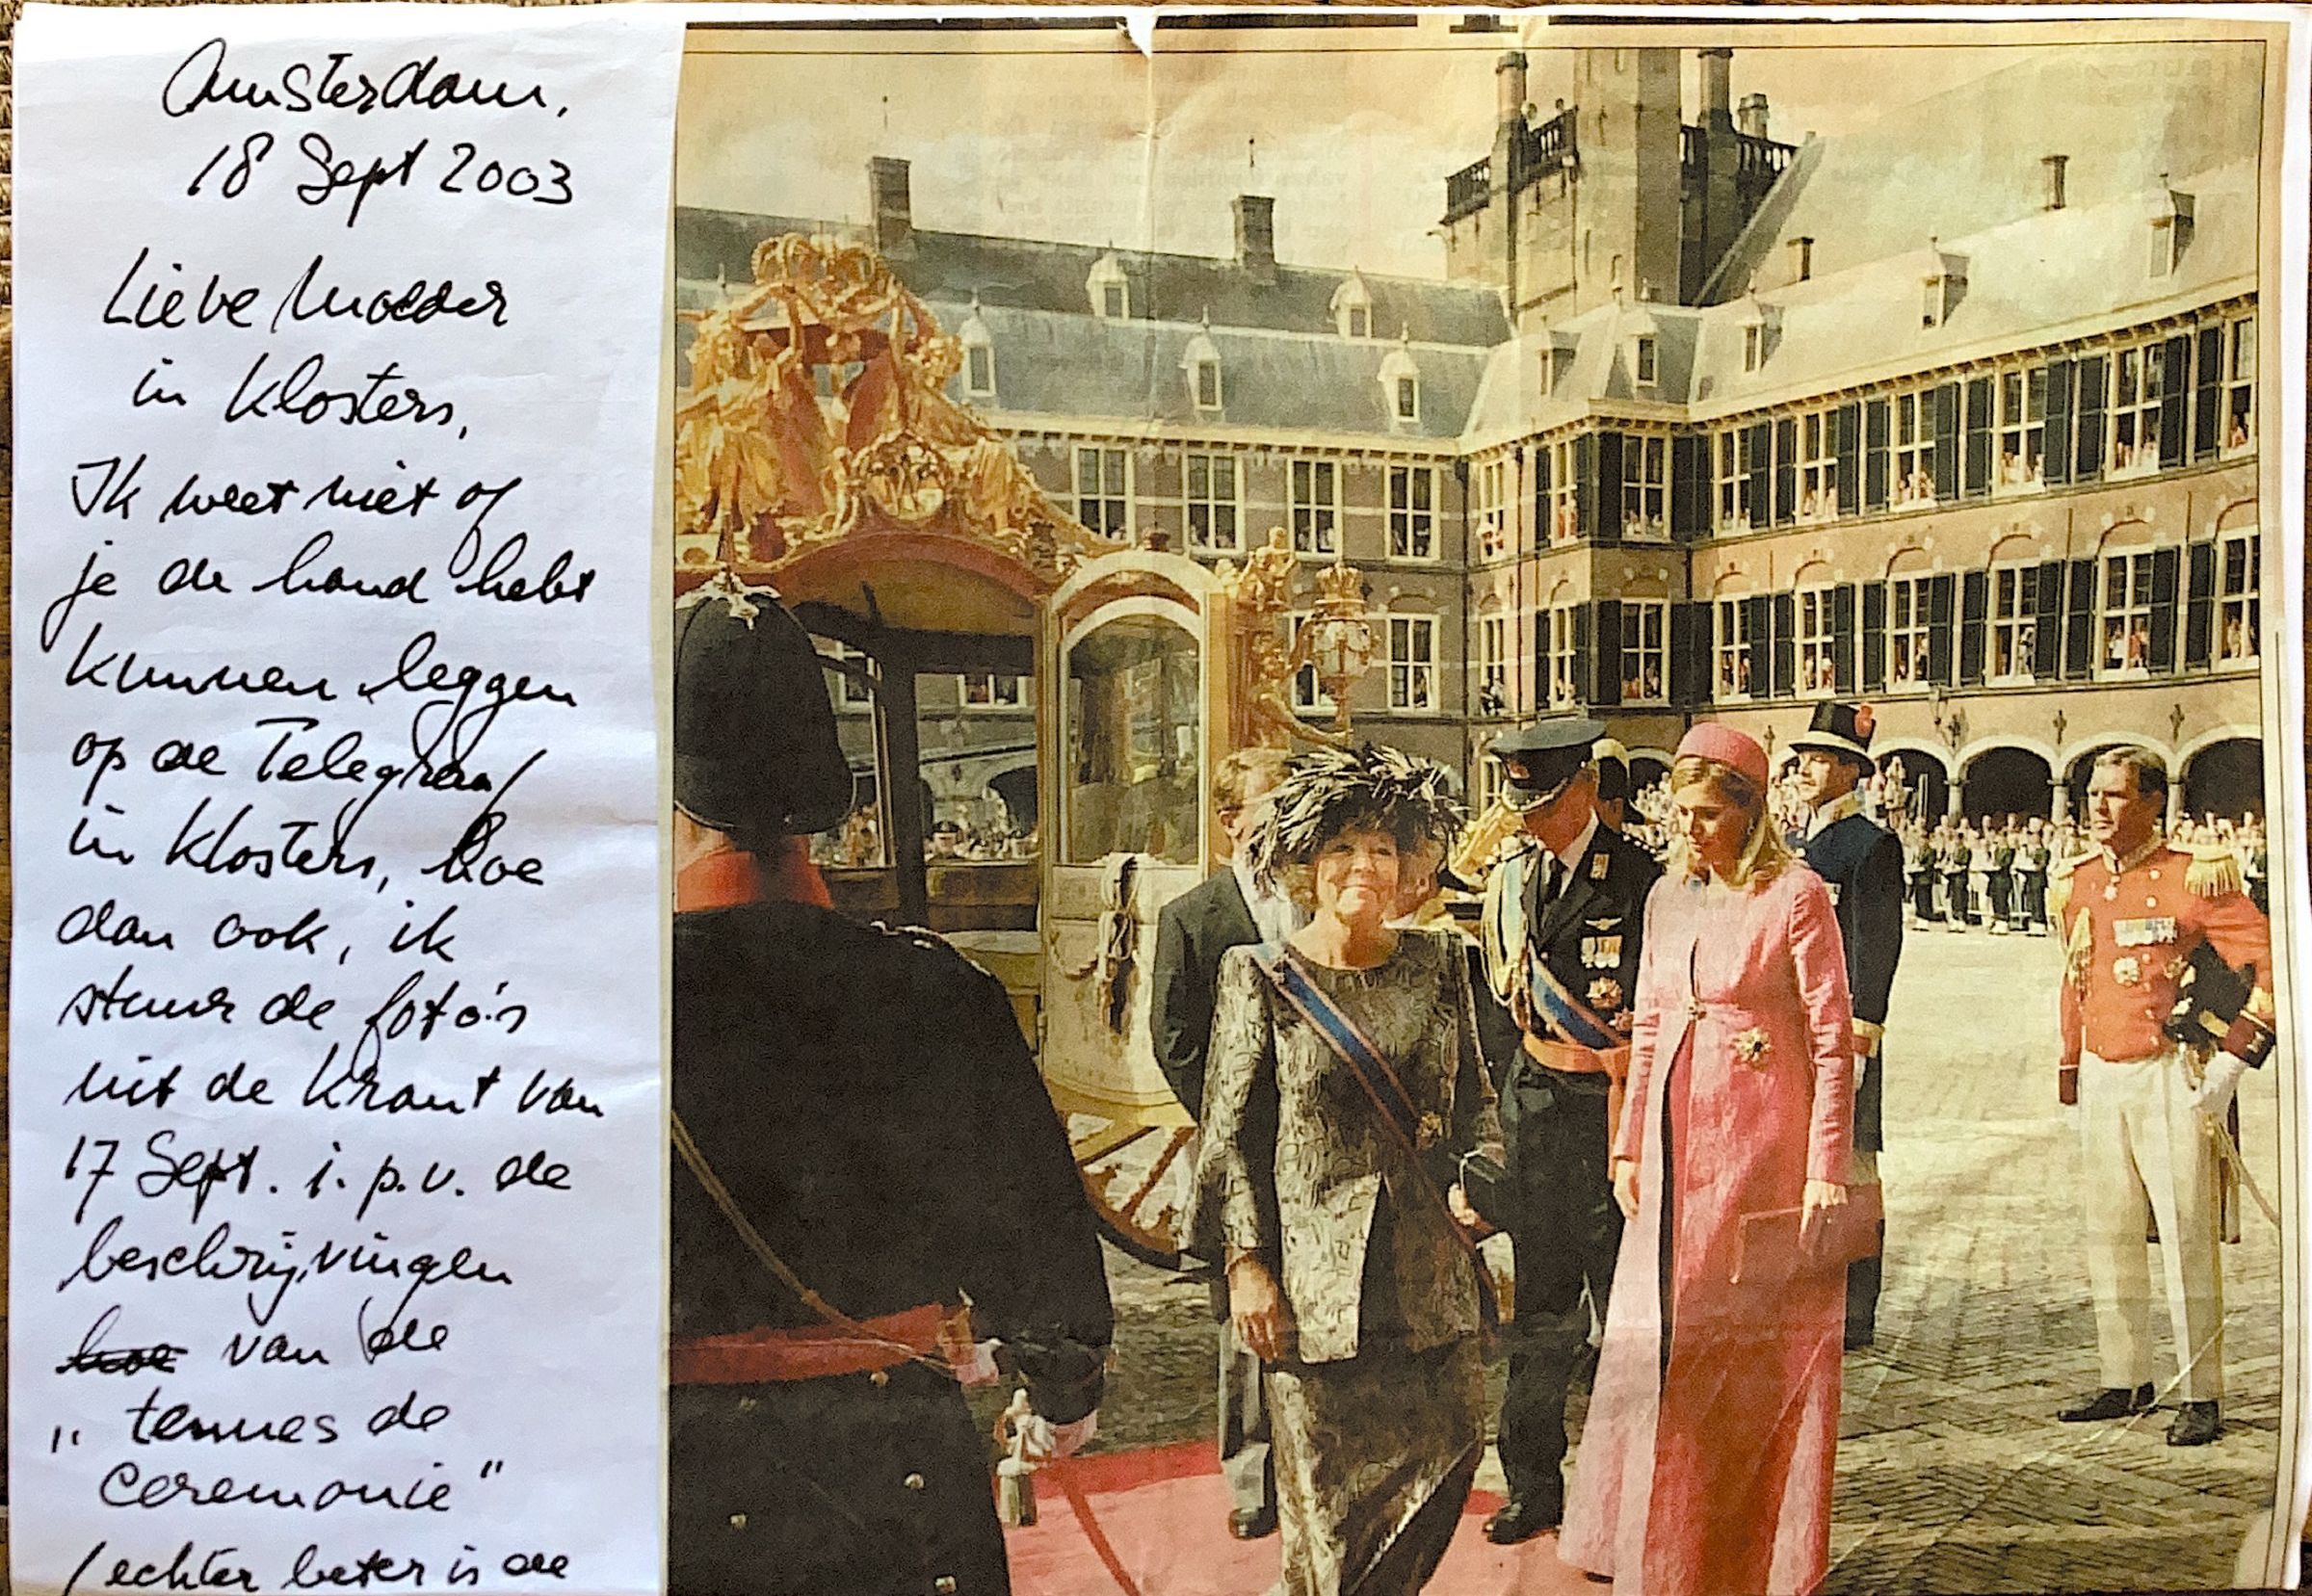 Amsterdam,
18 Sept 2003
Lieve Moeder
in Klosters,
Ik weet niet of
je de hand hebt
kunnen leggen
op de Telegraaf
in Klosters, hoe
dan ook, ik
stuur de foto's
uit de krant van
17 Sept. i.p.v. de
beschrijvingen
hoe van de
„ tenues de
ceremonie "
(echter beter is de